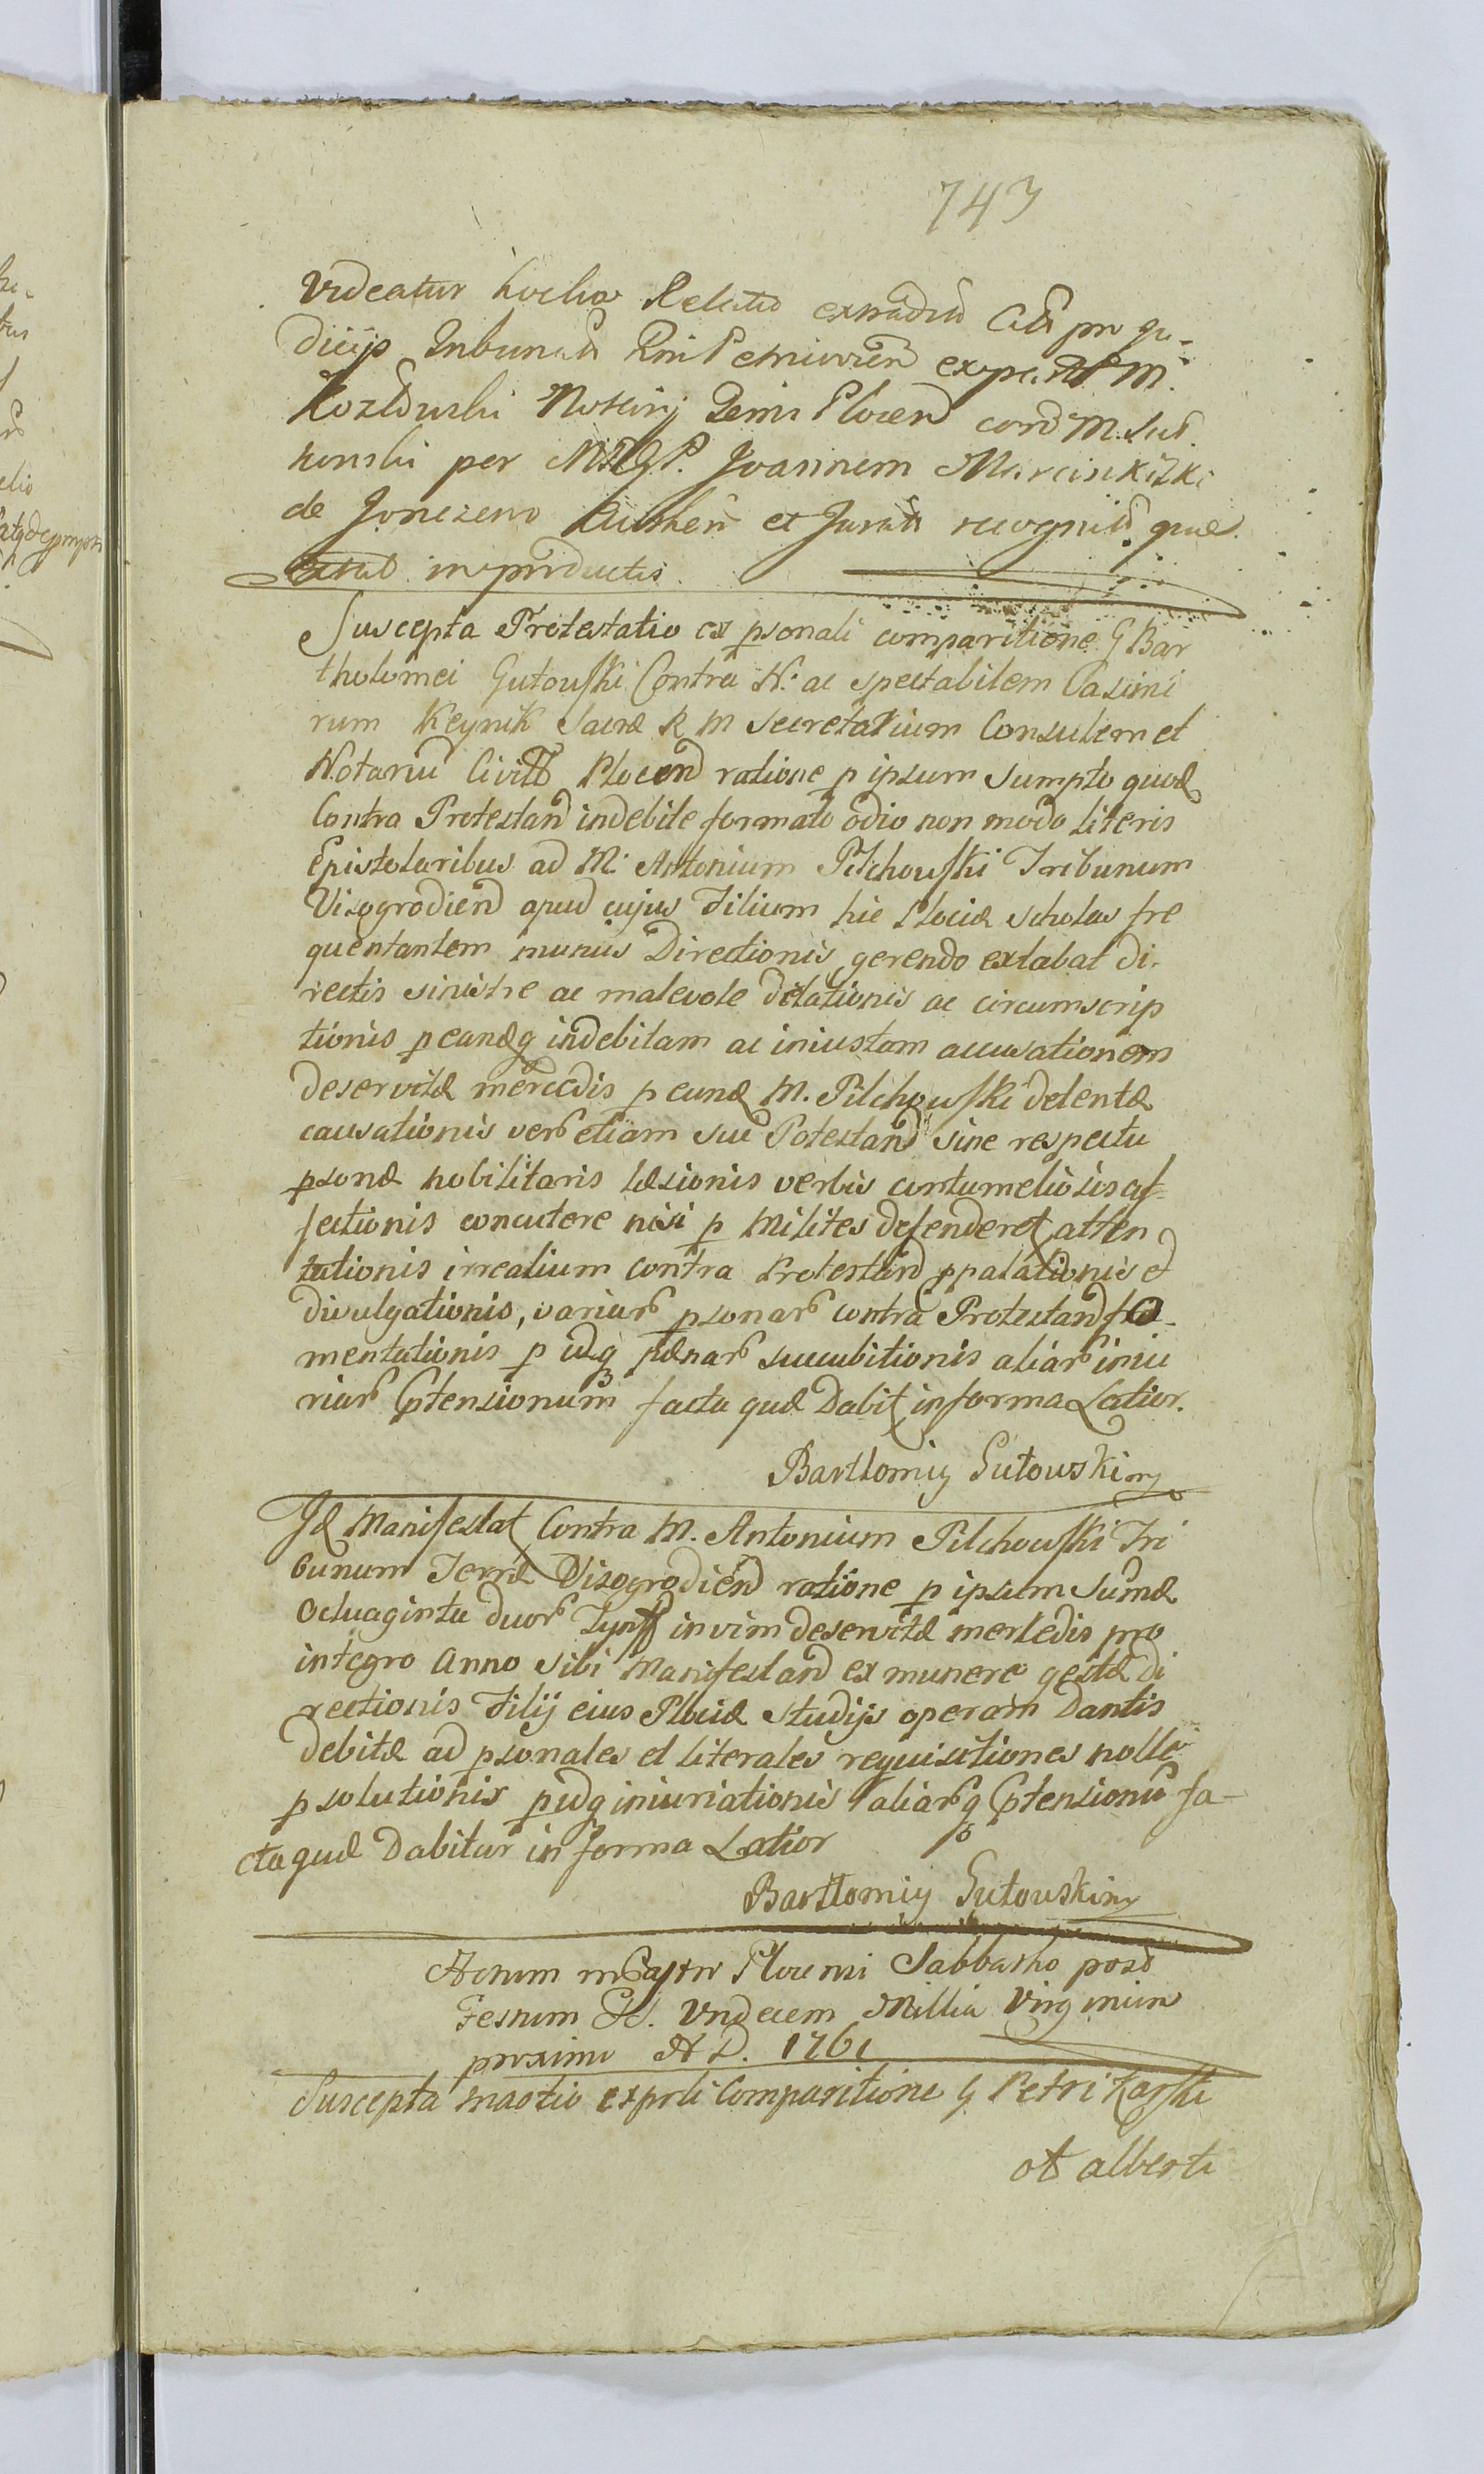 743
Videatur hucha Relatio extradit Citt pro Ju-
dicijs Tribunalit Rni Petricovien ex parte M.
Kozłowski Notarij Terris Plocen cord M. Sud.
konski per MRGP. Joannem Marcinkizki
de Jonezewo authen et Juratt recognitt quae
extat in productis
Suscepta Protestatio ex psonali comparitione G Bar
tholomei Gutouski Contra N. ac spectabilem Casimi
rum Keynik Sacrae R M Secretarium Consulem et
Notariu Civitt Plocen ratione p ipsum sumpto quod
Contra Protestan indebite formato odio non modo literis
Epistolaribus ad M. Antonium Pilchouski Tribunum
Visogrodien apud cujus Filium hic Plociae scholas fre
quentantem munus Directionis gerendo extabat di-
rectis sinistre ac malevole delationis ac circumscrip
tionis p eandq indebitam ac iniustam accusationem
deservitae mercedis p eund M. Pilchowski detentae
causationis vero etiam sui Potestand sine respectu
psonae nobilitaris laesionis verbis contumeliosis af-
fectionis concutere nisi p Milites defenderet atten
tationis irrealium contra Protestand ppalationis et
divulgationis, variar psonar contra Protestand fo-
mentationis p idq paenar succubitionis aliar iniu
riar Cptensionum facta quae Dabit in forma Latior.
Bartłomiy Gutowski mp
Id Manifestat Contra M. Antonium Pilchouski Tri
bunum Terrae Visogrodien ratione p ipsum Sumae
Octuaginta duor Tynff in vim deservitae mercedis pro
integro Anno sibi Manifestand ex munere gestae Di
rectionis Filij eius Plociae studijs operam Dantis
debitae ad psonales et literales requisitiones nolle
psolutionis p idq iniuriationis aliarq Cptensionu fa-
cta quae Dabitur in forma Latior
Bartłomiy Gutouski mp
Actum in Castro Plocensi Sabbatho post
Festum SS. Undecem Millia Virginum
proximo A D. 1761
Suscepta maotio ex psoli Comparitione G Petri Karski
et Alberti